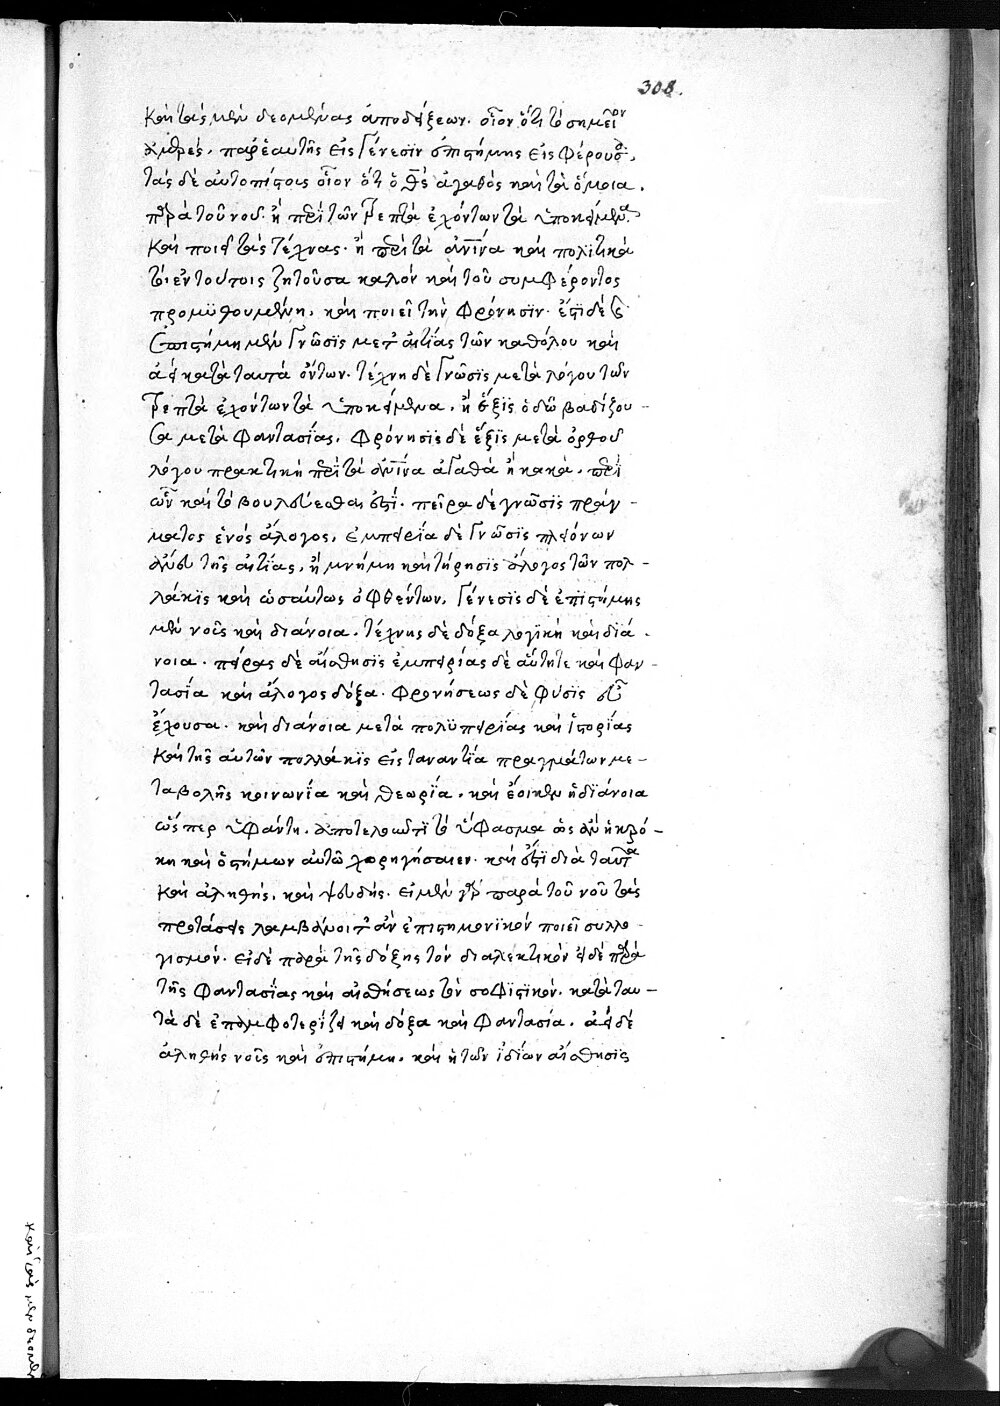 308.
καὶ τὰς μὲν δεομένας ἀποδείξεων. οἷον ὅτι τὸ σημεῖον
ἀμερές. παρ' ἑαυτῆς εἰς γένεσιν ἐπιστήμης εἰσφέρουσα.
τὰς δὲ αὐτοπίστοις οἷον ὅτι ὁ θς ἀγαθὸς καὶ τὰ ὅμοια.
παρὰ τοῦ νοῦ. ἢ περὶ τῶν ῥεπτὰ ἐχόντων τὰ ὑποκείμενα
καὶ ποιεῖ τὰς τέχνας. ἢ περὶ τὰ ἀνινα καὶ πολϊτικὰ
τὸ ἐν τούτοις ζητοῦσα καλὸν καὶ τοῦ συμφέροντος
προμϋθουμένη. καὶ ποιεῖ τὴν φρόνησϊν. ἔστϊ δὲ
ἐπιστήμη μὲν γνῶσϊς μετ' αἰτίας τῶν καθόλου καὶ
ἀεὶ κατὰ ταυτὰ ὄντων. τέχνη δὲ γνῶσϊς μετὰ λόγου τῶν
ῥεπτὰ ἐχόντων τὰ ὑποκείμενα. ἢ ἕξϊς ὁδῶ βαδίζου-
σα μετὰ φαντασΐας. φρόνησϊς δὲ ἕξϊς μετὰ ὀρθοῦ
λόγου πρακτικὴ περὶ τὰ ἀνινα ἀγαθὰ ἢ κακὰ. περὶ
ὧν καὶ τὸ βουλεύεσθαι ἐστΐ. πεῖρα δὲ γνῶσϊς πράγ-
ματος ἑνὸς ἄλογος. ἐμπειρία δὲ γνῶσϊς πλειόνων
ἄνευ τῆς αἰτίας. ἢ μνήμη καὶ τήρησϊς ἄλογος τῶν πολ-
λάκϊς καὶ ὡσαύτως ὀφθέντων. γένεσϊς δὲ ἐπϊστήμης
μὲν νοῦς καὶ διάνοια. τέχνης δὲ δόξα λογϊκὴ καὶ διά-
νοια. πείρας δὲ αἴσθησϊς ἐμπειρίας δὲ αὕτη τε καὶ φαν-
τασΐα καὶ ἄλογος δόξα. φρονήσεως δὲ φύσϊς εὖ
ἔχουσα. καὶ διάνοια μετὰ πολϋπειρίας καὶ ἱστορίας
καὶ τῆς αὐτῶν πολλάκϊς εἰς τἀναντΐα πραγμάτων με-
ταβολῆς κοινωνΐα καὶ θεωρΐα. καὶ ἔοικεν ἡ δϊάνοια
ὥσπερ ὑφάντη. ἀποτελοῦντϊ τὸ ὕφασμα ὡς ἂν ἡ κρό-
κη καὶ ὁ στήμων αὐτῶ χορηγήσαιεν. καὶ ἔστϊ διὰ ταῦτα
καὶ ἀληθὴς. καὶ ψευδής. εἰ μὲν γὰρ παρὰ τοῦ νοῦ τὰς
προτάσεις λαμβάνοι τὸν ἐπιστημονϊκὸν ποιεῖ συλλο-
γισμόν. εἰ δὲ παρὰ τῆς δόξης τὸν διαλεκτικὸν εἰ δὲ παρὰ
τῆς φαντασΐας καὶ αἰσθήσεως τὸν σοφϊστϊκὸν. κατὰ ταυ-
τὰ δὲ ἐπαμφοτερΐζει καὶ δόξα καὶ φαντασία. ἀεὶ δὲ
ἀληθὴς νοῦς καὶ ἐπιστήμη. καὶ ἡ τῶν ϊδΐων αἴσθησϊς
καὶ τὰς μὲν δεομέν